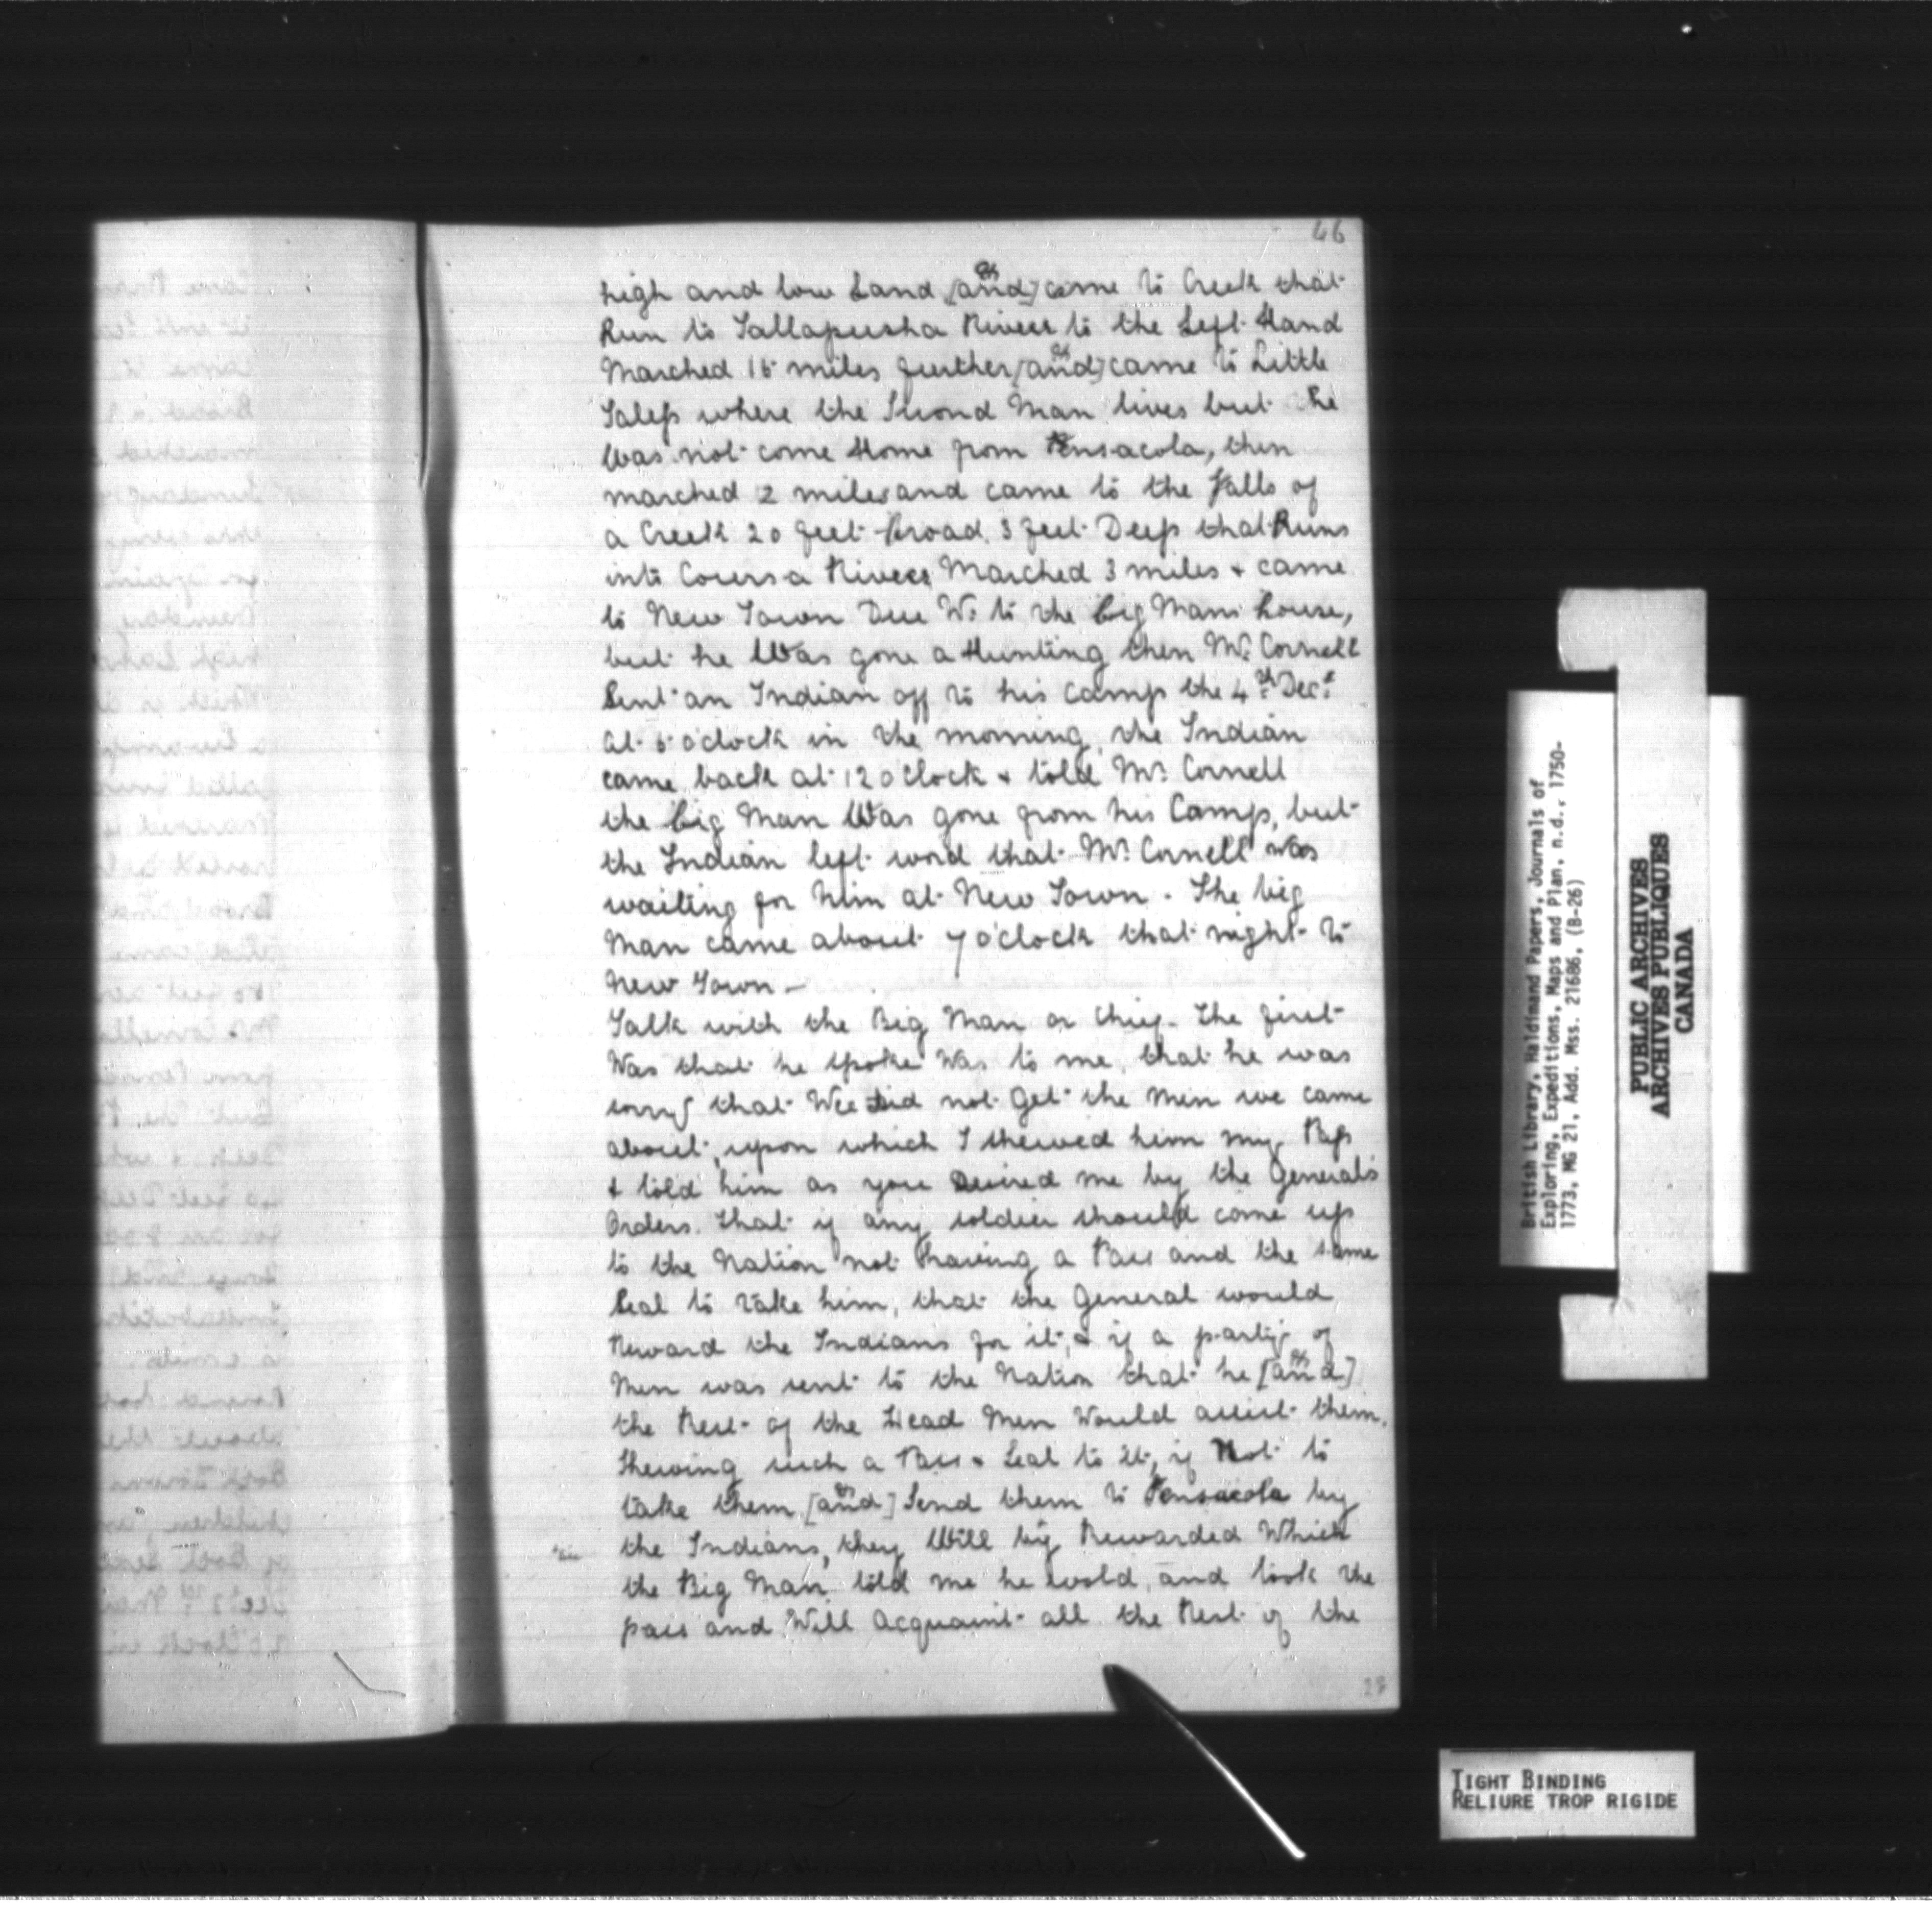 46
high and low Land [and] came to Creek that
Run to Tallapusha River to the Left Hand
Marched 15 miles further [and] came to Little
Taless where the Second Man lives but he
Was not come Home from Pensacola, then
marched 2 miles and came to the Falls of
a Creek 20 feet broad 3 feet Deep that Runs
into Coursa River Marched 3 miles & came
to New Town Due W. to the big Mans house,
but he Was gone a Hunting then Mr. Cornell
Sent an Indian off to his Camp the 4th Decr.
at 6 o'clock in the morning, the Indian
came back at 12 o'Clock & told Mr. Cornell
the big Man Was gone from his Camp, but
the Indian left word that Mr. Cornell was
waiting for him at New Town. The big
Man came about 7 o'clock that night to
New Town —
Talk with the Big Man or Chief. The first
Was that he spoke Was to me, that he was
sorry that Wee did not Get the Men we came
about, upon which I shewed him my Pass
& told him as you Desired me by the General's
Orders. That if any soldier should come up
to the Nation not having a Pass and the same
Seal to take him, that the General would
Reward the Indians for it, & if a party of
Men was sent to the Nation that he [and]
the Rest of the Head Men Would assist them.
Shewing such a Pass & Seal to it, if Not to
take them [and] Send them to Pensacola by
the Indians, they Will big Rewarded Which
the Big Man told me he wold, and took the
pass and Will Acquaint all the Rest of the
28
British Library, Haldimand Papers, Journals of
Exploring, Expeditions, Maps and Plan, n.d., 1750-
1773, MG 21, Add. Mss. 21686, (B-26)
PUBLIC ARCHIVES
ARCHIVES PUBLIQUES
CANADA
TIGHT BINDING
RELIURE TROP RIGIDE